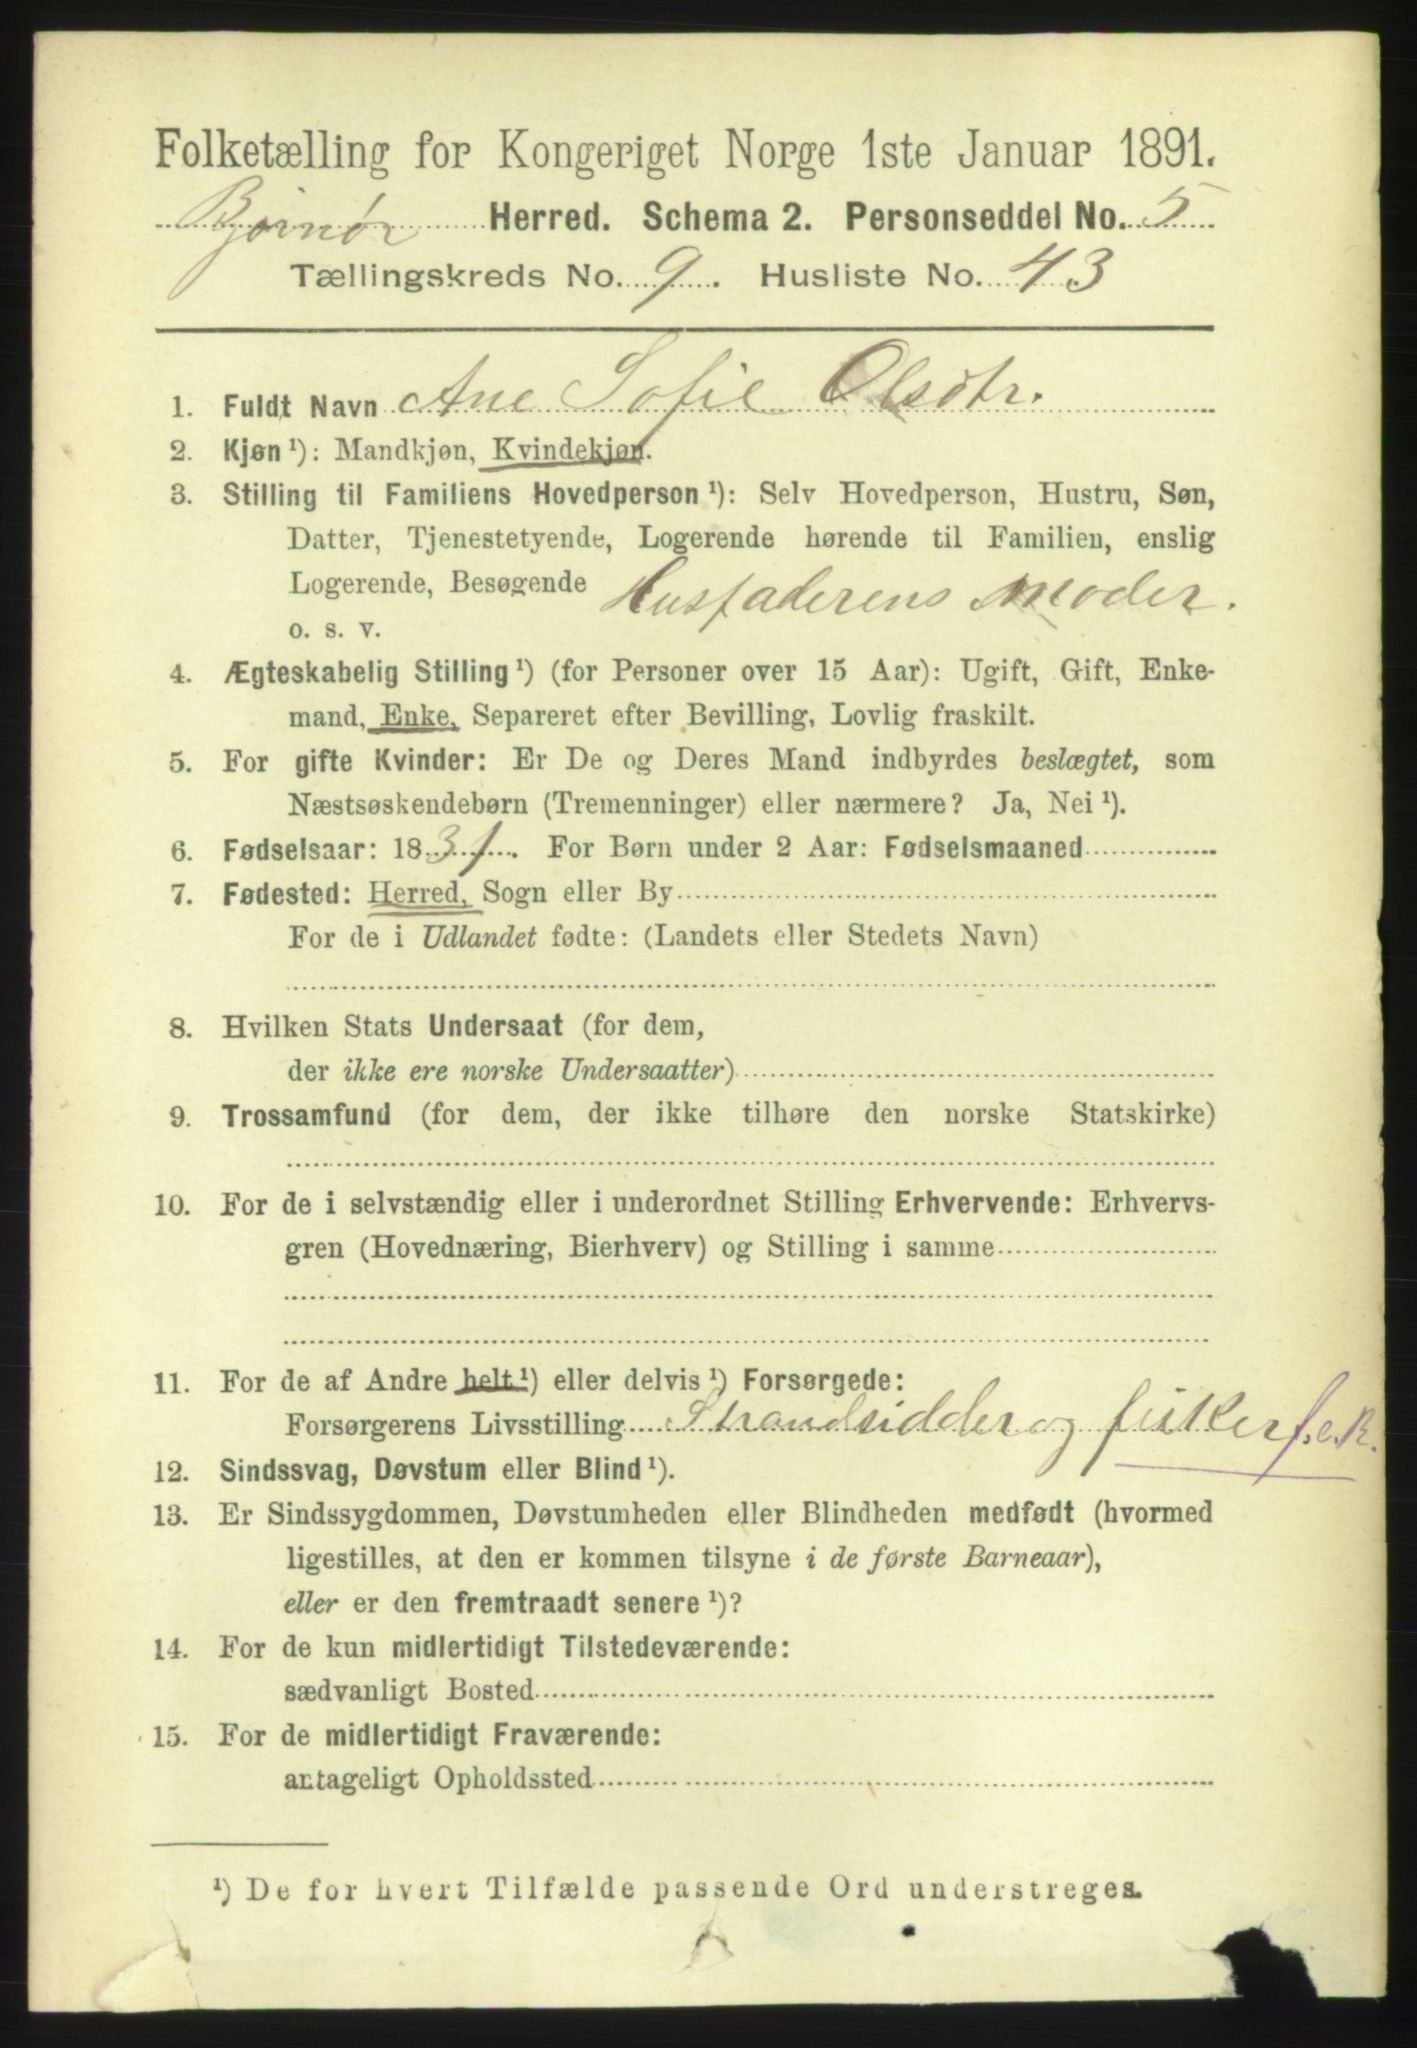 Folketælling for Kongeriget Norge 1ste Januar 1891.
Bjørnør Herred. Schema 2. Personseddel No. 5
Tællingskreds No. 9. Husliste No. 43
1. Fuldt Navn Ane Sofie Olsdtr.
2. Kjøn ¹): Mandkjøn, Kvindekjøn.
3. Stilling til Familiens Hovedperson ¹): Selv Hovedperson, Hustru, Søn,
Datter, Tjenestetyende, Logerende hørende til Familien, enslig
Logerende, Besøgende Husfaderens Moder.
o. s. v.
4. Ægteskabelig Stilling ¹) (for Personer over 15 Aar): Ugift, Gift, Enke-
mand, Enke, Separeret efter Bevilling, Lovlig fraskilt.
5. For gifte Kvinder: Er De og Deres Mand indbyrdes beslægtet, som
Næstsøskendebørn (Tremenninger) eller nærmere? Ja, Nei ¹).
6. Fødselsaar: 1831. For Børn under 2 Aar: Fødselsmaaned
7. Fødested: Herred, Sogn eller By
For de i Udlandet fødte: (Landets eller Stedets Navn)
8. Hvilken Stats Undersaat (for dem,
der ikke ere norske Undersaatter)
9. Trossamfund (for dem, der ikke tilhøre den norske Statskirke)
10. For de i selvstændig eller i underordnet Stilling Erhvervende: Erhvervs-
gren (Hovednæring, Bierhverv) og Stilling i samme
11. For de af Andre helt ¹) eller delvis ¹) Forsørgede:
Forsørgerens Livsstilling Strandsidder og fisker f.e.R.
12. Sindssvag, Døvstum eller Blind ¹).
13. Er Sindssygdommen, Døvstumheden eller Blindheden medfødt (hvormed
ligestilles, at den er kommen tilsyne i de første Barneaar),
eller er den fremtraadt senere ¹)?
14. For de kun midlertidigt Tilstedeværende:
sædvanligt Bosted
15. For de midlertidigt Fraværende:
antageligt Opholdssted
¹) De for hvert Tilfælde passende Ord understreges.